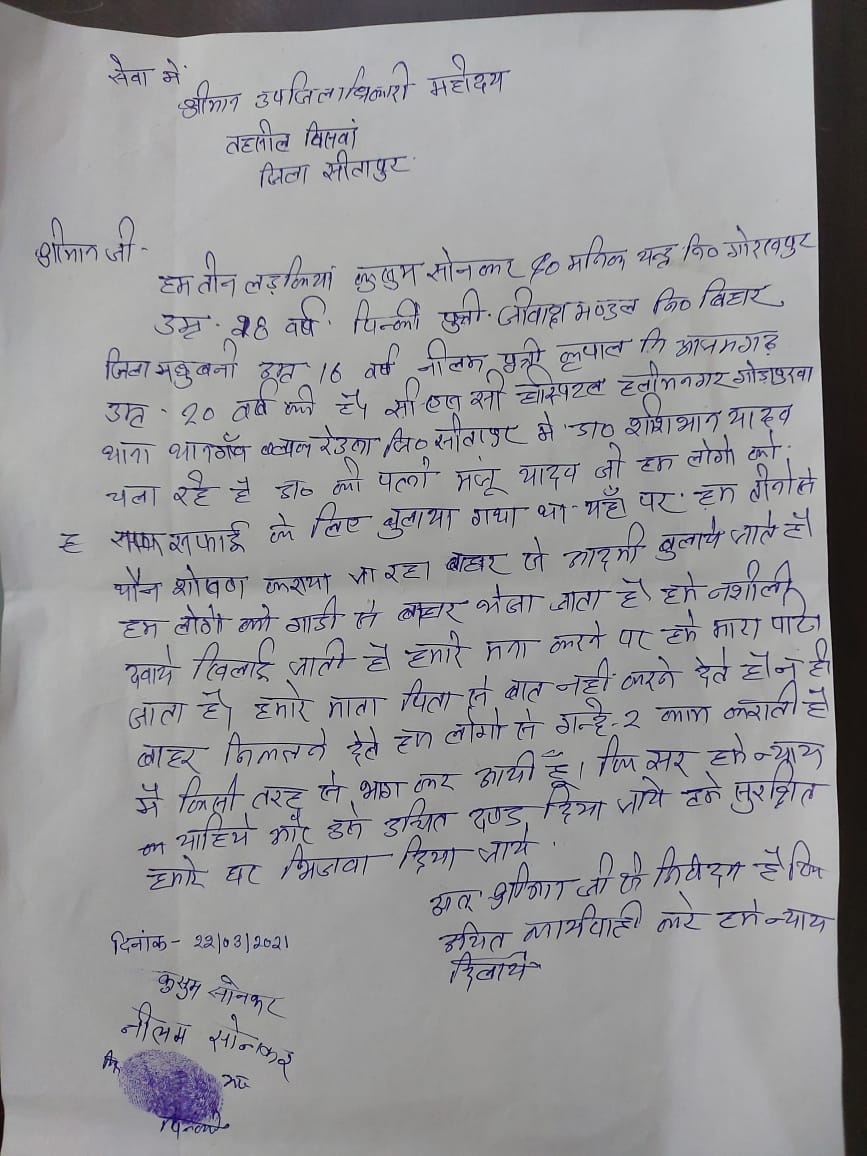 सेवा में
श्रीमान उपजिलाधिकारी महोदय
तहसील बिसवां
जिला सीतापुर
श्रीमान जी -
हम तीन लड़कियां कुसुम सोनकर D/o मनिक चन्द्र नि० गोरखपुर
उम्र 28 वर्ष पिन्की पुत्री मण्डल नि० बिहार
जिला मधुबनी उम्र 16 वर्ष नीलम पुत्री कृपाल नि आजमगढ़
उम्र 20 वर्ष की है। सी एल सी हॉस्पिटल हलीमनगर
थाना थानगाँव ब्लाक रेउसा जि० सीतापुर में डा० शशिभान यादव
चला रहे है डा० की पत्नी मंजू यादव जी हम लोगो को
सफाई के लिए बुलाया गया था यहाँ पर हम तीनो से
यौन शोषण कराया जा रहा बाहर से आदमी बुलाये जाते है।
हम लोगो को गाडी से बाहर भेजा जाता है हमे नशीली
दवाये खिलाई जाती है हमारे मना करने पर हमे मारा पीटा
जाता है। हमारे माता पिता से बात नही करने देते है न ही
बाहर निकलने देते हम लोगो से गन्दे-2 काम कराती है
मैं किसी तरह से भाग कर आयी हूँ। कि सर हमे न्याय
चाहिये और उसे उचित दण्ड दिया जाये हमे सुरक्षित
हमारे घर भिजवा दिया जाये
अतः श्रीमान जी से निवेदन है कि
उचित कार्यवाही करे हमे न्याय
दिलाये
दिनांक - 22/03/2021
कुसुम सोनकर
नीलम सोनकर
पिन्की